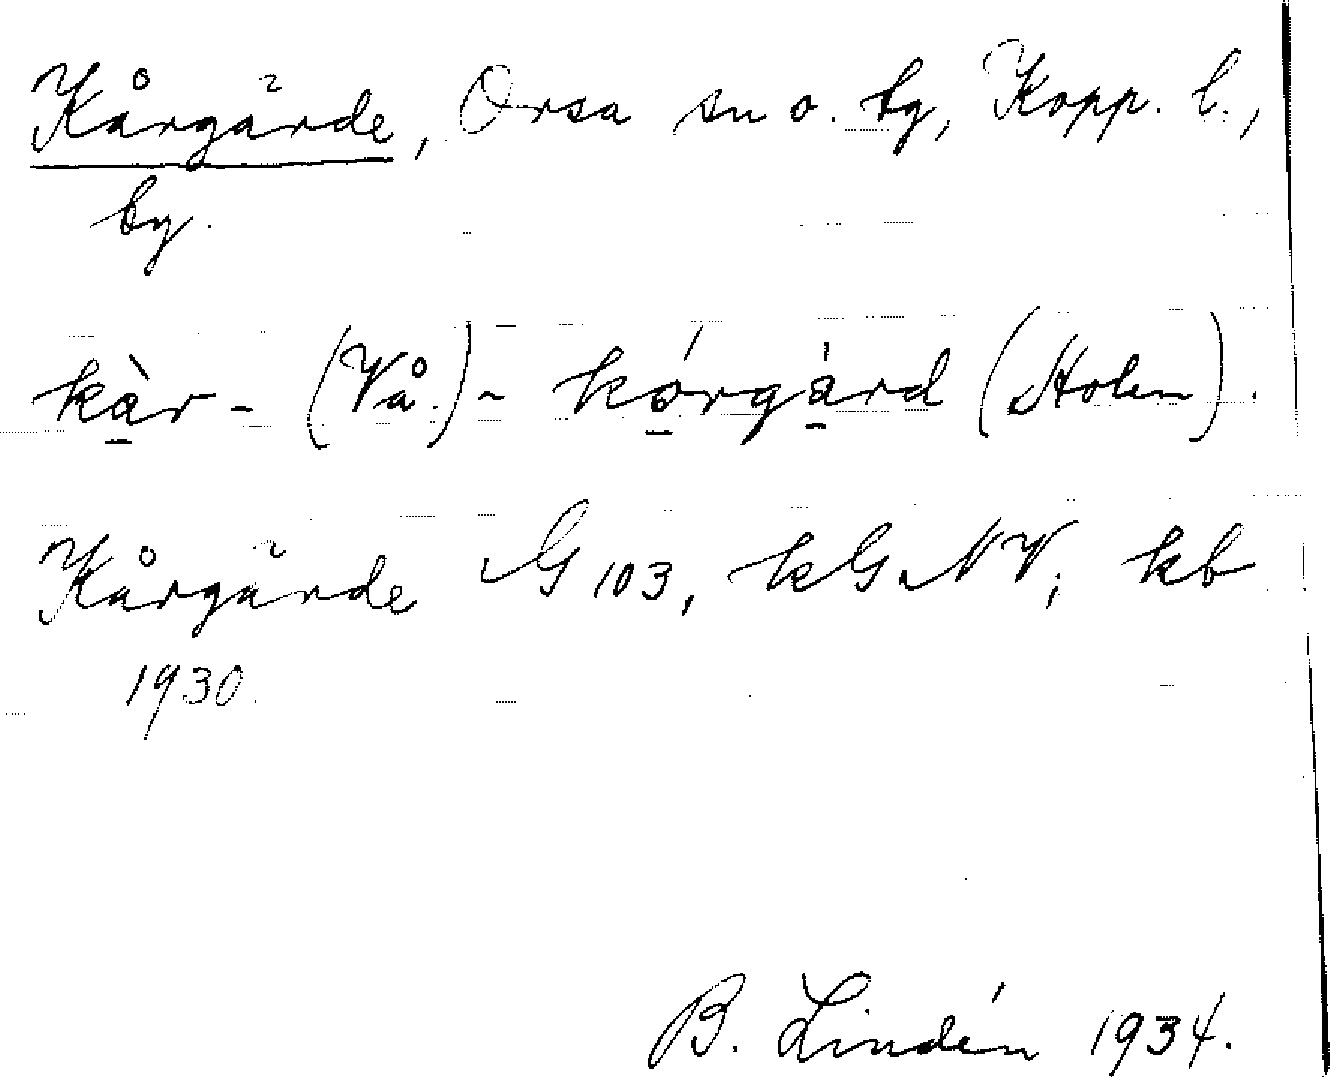 Kårgärde, Orsa sn o. tg, Kopp. l.,
by.
kàr- (Vå.) ~ kórgárd (Holen).
Kårgärde G 103, kGNV; kb
1930.
B. Lindén 1934.